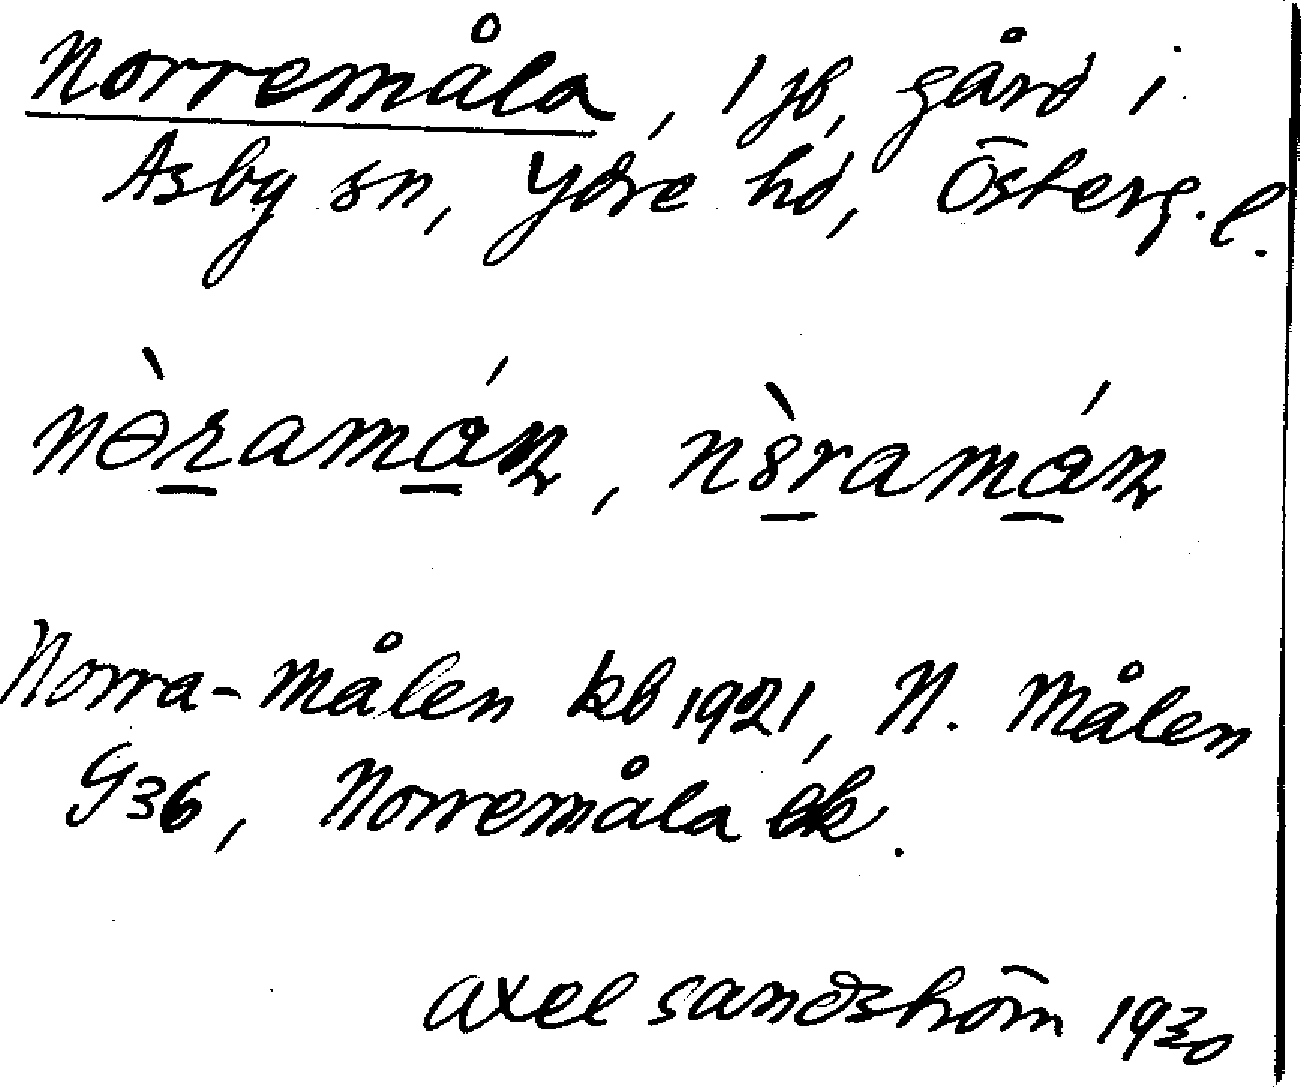 Norremåla, 1 jb, gård i
Asby sn, Ydre hd, Österg. l.
Norra-Målen kb 1921, N. Målen
G36, Norremåla ek.
Axel Sandström 1930